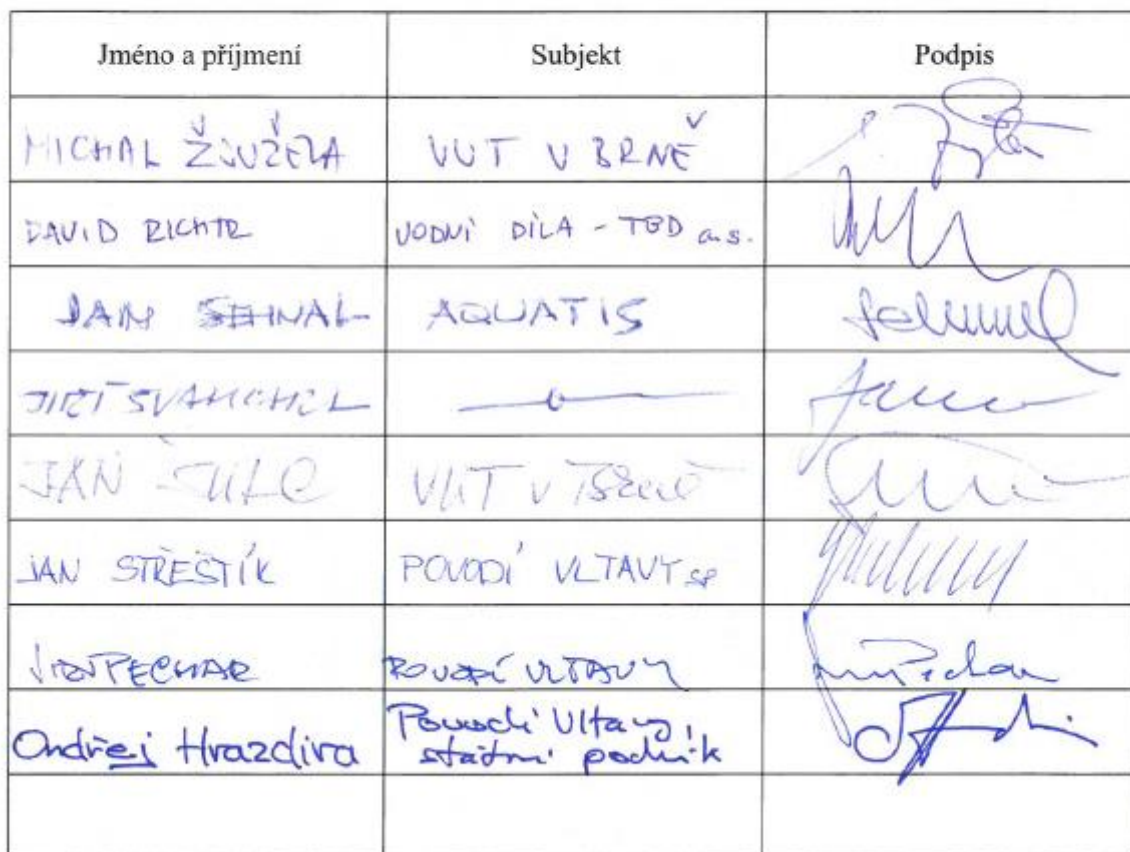 Jméno a příjmení Subjekt Podpis
MICHAL ŽOUŽELA VUT V BRNĚ
DAVID RICHTR VODNÍ DÍLA - TBD a.s.
JAN SEHNAL AQUATIS
JIŘÍ
JAN ŠULC VUT v Brně
JAN STŘEŠTÍK POVODÍ VLTAVY sp
PECHAR POVODÍ VLTAVY
Ondřej Hrazdira Povodí Vltavy,
státní podnik